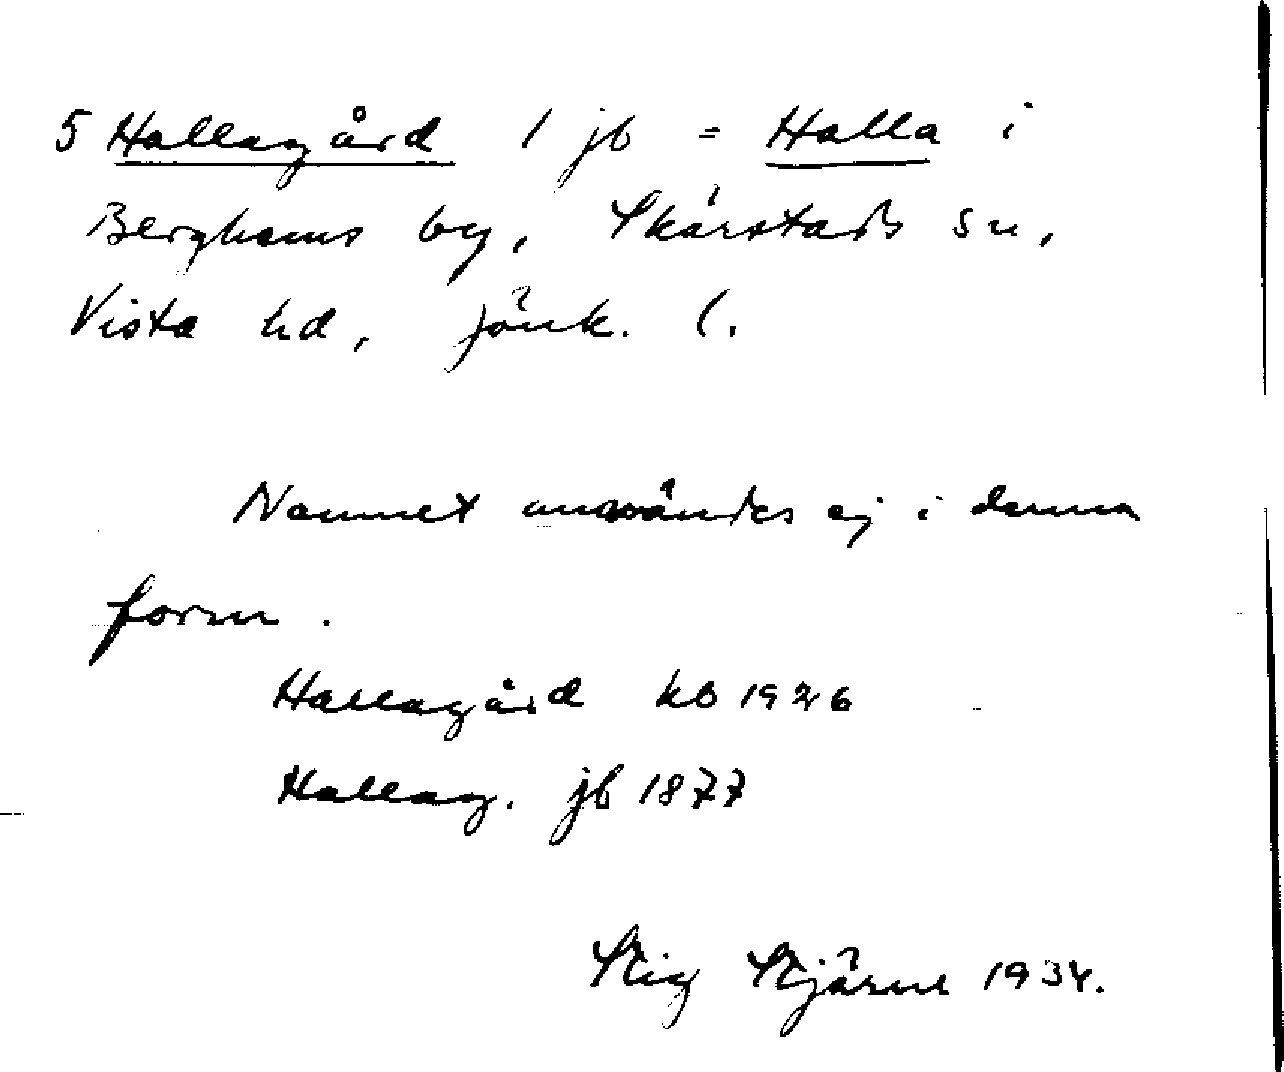 5 Hallagård 1 jb = Halla i
Berghems by, Skärstads sn,
Vista hd, Jönk. l.
Namnet användes ej i denna
form.
Hallagård kb 1926
Hallag. jb 1877
Stig Stjärne 1934.